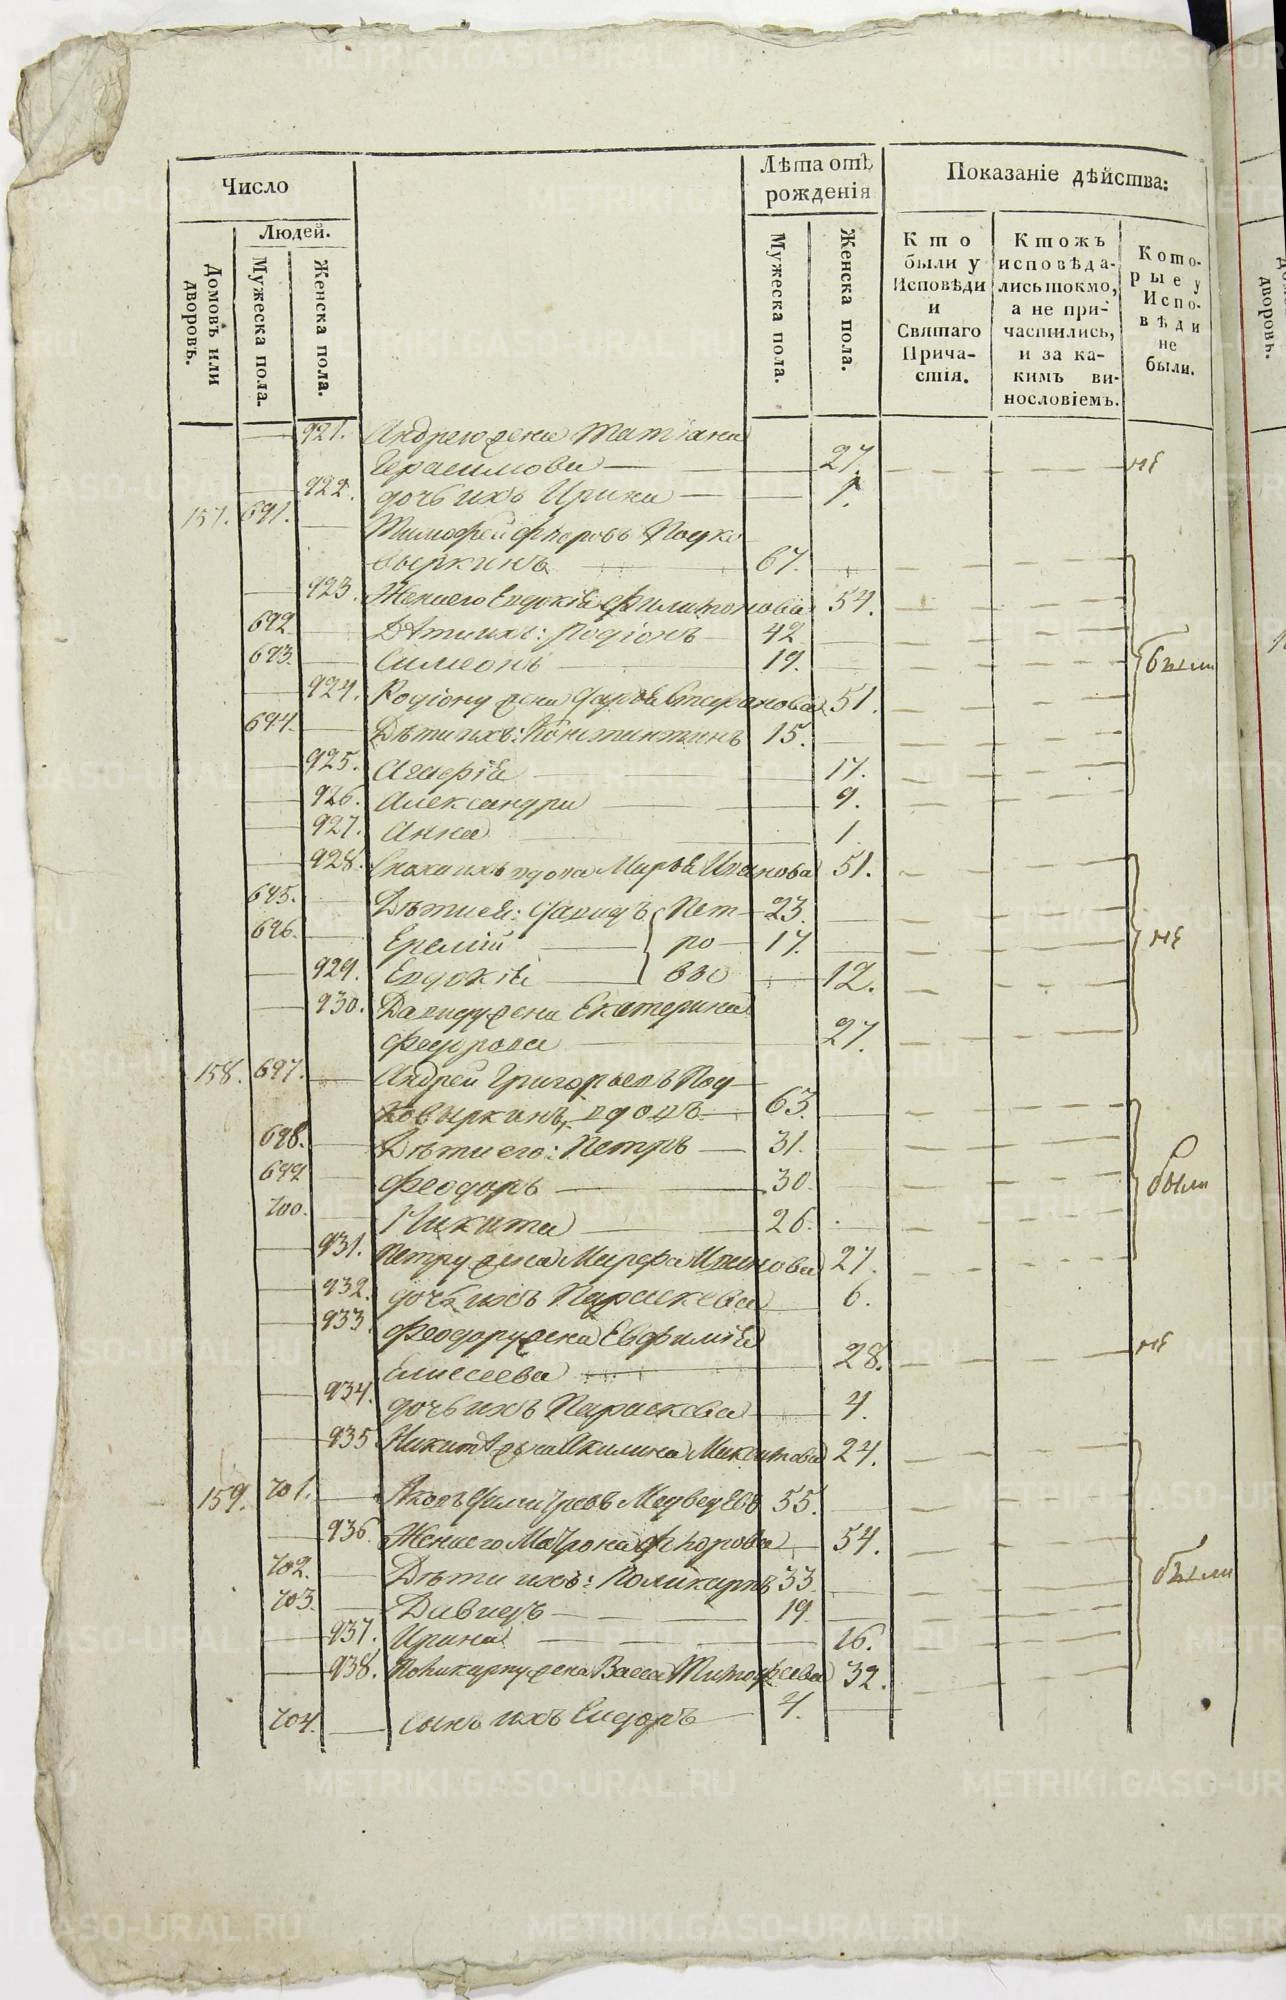 Число
Людей.
Домовъ или дворовъ.
Мужеска пола.
Женска пола.
Лѣта отъ рожденія
Мужеска пола.
Женска пола.
Показаніе дѣйства:
Кто были у Исповѣди и Святаго Причастія.
Ктожъ исповѣдались токмо, а не причастились, и за какимъ винословіемъ.
Которые у Исповѣди не были.
921. Андрею жена Татіана
Герасимова 27. не
922. дочь ихъ Ирина 1.
157. 691. Тимофей Ѳедоровъ Подко
выркинъ 67.
923. Жена его Евдокіа Филимонова 54.
692. Дѣти ихъ: Родіонъ 42
693. Симеонъ 19. были
924. Родіону жена Дарья Стефанова 51.
694. Дѣти ихъ: Константинъ 15.
925. Агафіа 17.
926. Александра 9.
927. Анна 1
928. Сноха ихъ вдова Марѳа Иванова 51.
695. Дѣти ей: Давидъ Пет 23.
696. Еремій ро 17. не
929. Евдокіа вы 12.
930. Давиду жена Екатерина
Феодорова 27.
158. 697. Андрей Григорьевъ Под
ковыркинъ, вдовъ 63.
698. Дѣти его: Петръ 31.
699 Феодоръ 30. были
700. Никита 26.
931. Петру жена Марфа Иванова 27.
932. дочь ихъ Параскева 6.
933. Феодору жена Евфиміа
Елисеева 28. не
934. дочь ихъ Параскева 4.
935 Никитѣ жена Акилина Никитова 24.
159. 701. Яковъ Димитріевъ Медведевъ 55.
936. Жена его Матрона Ѳедорова 54.
702. Дѣти ихъ: Поликарпъ 33. были
703. Давидъ 19
937. Ирина 16.
938. Поликарпу жена Васса Тимофеева 32.
704. Сынъ ихъ Сидоръ 4.
METRIKI.GASO-URAL.RU